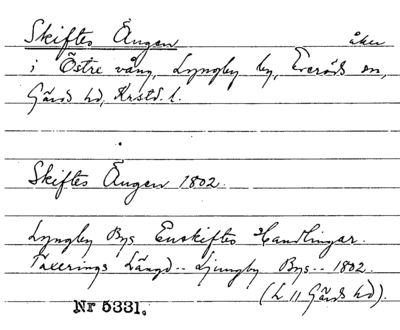 Skiftes Ängen åker
i Östre vång, Lyngby by, Everöds sn,
Gärds hd, Krstd. l.
Skiftes Ängen 1802.
Lyngby Bys Enskiftes Handlingar.
Taxerings Längd -- Ljungby Bys -- 1802.
(L 11 Gärds hd).
Nr 5331.